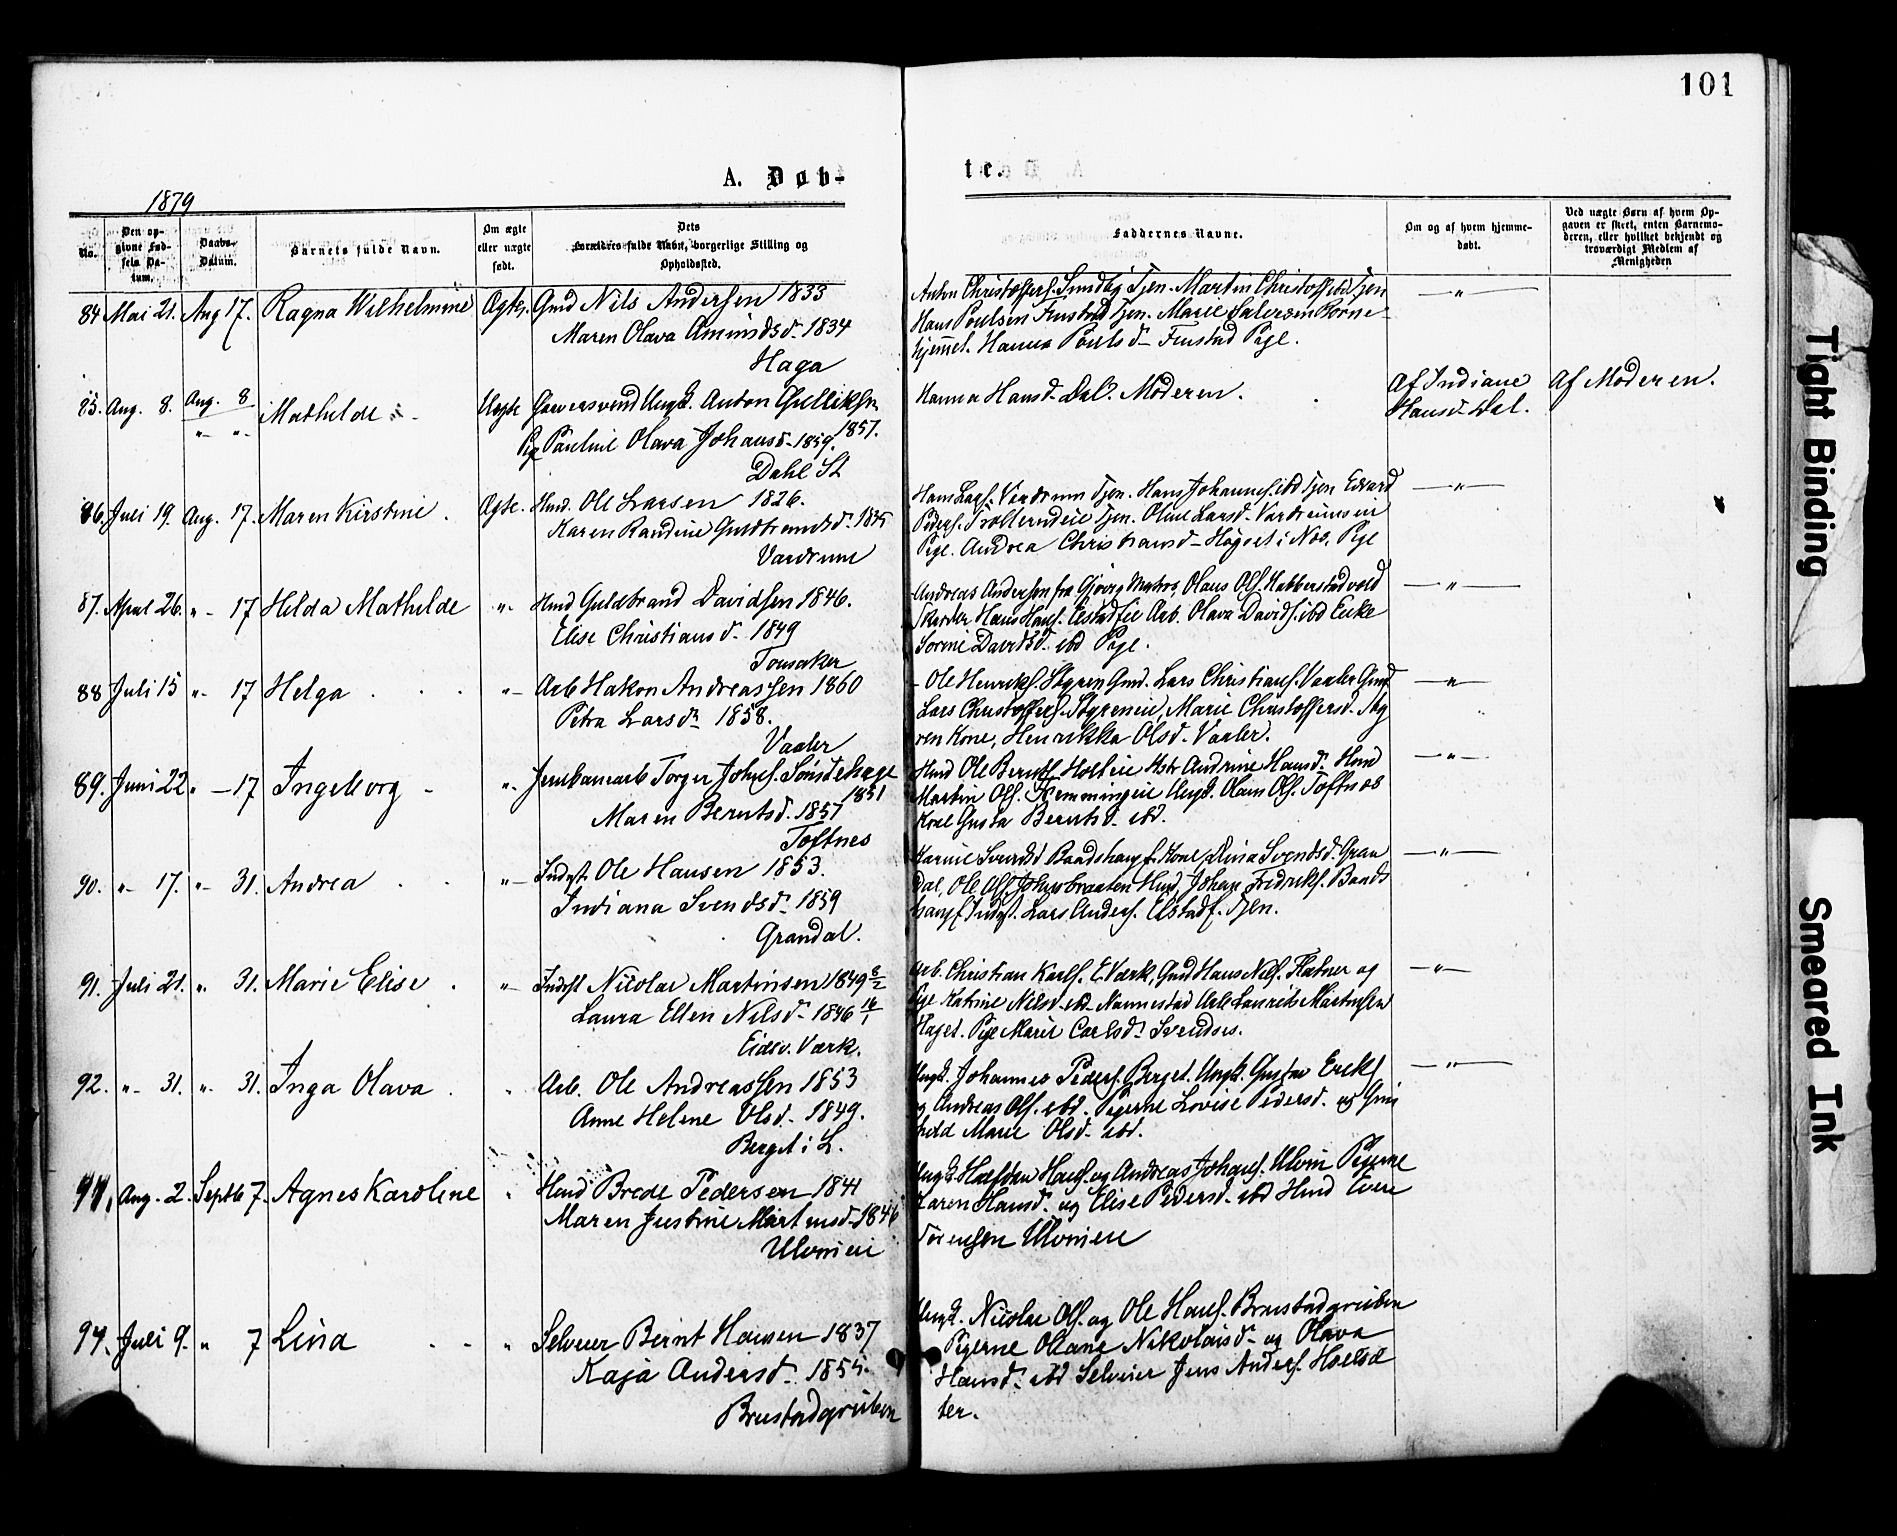 101
A. Døb-
te.
1879
No.
Den opgivne Fødsels Datum.
Daabs-Datum.
Barnets fulde Navn.
Om ægte eller uægte født.
Dets Forældres fulde Navn, borgerlige Stilling og Opholdssted.
Faddernes Navne.
Om og af hvem hjemmedøbt.
Ved uægte Børn af hvem Opgaven er skeet, enten Barnemoderen, eller hvilket bekjendt og troværdigt Medlem af Menigheden
84 Mai 21. Aug 17. Ragna Wilhelmine Ægte. Gmd Nils Andersen 1833
Maren Olava Amunds d. 1834
Haga
Anton Christoffers. Tjen. Martin Christoffers. ibd Tjen
Hans Poulsen Finstad Tjen. Marie Halvorsen Børne-
hjemmet. Hanna Pouls d. Finstad Pige.
— " —
85. Aug. 8. Aug. 8 Mathilde Uægte Garversvend Ungk. Anton Gulliksen
" "
1857.
Pige Pauline Olava Johans d. 1859.
Dahl St
Hanna Hans d. Dal. Moderen.
Af Indiane
Hans d. Dal.
Af Moderen.
86. Juli 19. Aug. 17. Maren Kirstine. Ægte. Hmd. Ole Larsen 1826.
Karen Randine Guldbrands d. 1835
Vardrum
Hans Lars. Vardrum Tjen. Hans Johannes. ibd Tjen Edvard
Peders. Tjen. Oline Lars d. Vardrum
Pige. Andrea Christians d. Høgset i Næs. Pige
— " —
87. April 26. " 17 Hilda Mathilde " Hmd Guldbrand Davidsen 1846.
Elise Christians d. 1849
Tomsaker
Andreas Andersen fra Gjøvig Matros, Olaus Ols. Habberstadvold
Skrædder Hans Hans. Elstadeie Arb. Olava Davids. ibd Enke
Sorine Davids d. ibd Pige.
— " —
88 Juli 15 " 17 Helga . . . " Arb Hakon Andreassen 1860
Petra Lars d. 1858.
Vaaler
Ole Henriks. Styren Gmd. Lars Christians. Vaaler Gmd
Lars Christoffers. Styreneie, Marie Christoffers d. Sty
ren Kone, Henrikka Ols d. Vaaler.
— " —
89. Juni 22 " 17 Ingeborg - " Jernbanearb Torger Johns. Sønstehage
1851
Maren Bernts d. 1857
Toftnes
Hmd Ole Bernts. Holteie Hstr Andrine Hans d. Hmd
Martin Ols. Hemmingeie Ungk. Olaus Ols. Toftnes
Kone Gusta Bernts d. ibd.
— " —
90. " 17. " 31. Andrea . . " Inderst. Ole Hansen 1853.
Indiana Svends d. 1859
Grandal.
Karine Svends d Baadshaug f. Kone, Dina Svends d. Gran
dal, Ole Ols. Johnsbraaten Hmd, Johan Fredriks. Baads
haug f. Inderst. Lars Anders. Elstad f. Tjen.
— " —
91. Juli 21. " 31. Marie Elise . " Inderst Nicolai Martinsen 1849 8/2
Laura Ellen Nils d. 1846 16/1
Eidsv. Værk.
Arb. Christian Karls. E. Værk, Gmd Hans Nils. Flatner og
Pige Katrine Nils d. ibd. Nannestad Arb Laurits Martinsen
Haget. Pige Marie Carls d. Svendses.
— " —
92. " 31. " 31. Inga Olava . " Arb. Ole Andreassen 1853
Anne Helene Ols d. 1849.
Berget i L.
Ungk. Johannes Peders. Berget. Ungk. Gustav Eriks
og Andreas Ols. ibd. Pigerne Lovise Peders d. og Gun
hild Marie Ols d. ibd.
— " —
Aug. 2 Septb 7. Agnes Karoline " Hmd Brede Pedersen 1841
Maren Justine Martins d. 1846
Ulvineie
Ungk. Halfdan Hans. og Andreas Johans. Ulvin Pigerne
Karen Hans d. og Elise Peders d. ibd Hmd Even
Sørensen Ulvineie
94. Juli 9. " 7 Lina . . " Selveier Bernt Hansen 1837
Kaja Anders d. 1855.
Brustadgruben
Ungk. Nicolai Ols. og Ole Hans. Brustadgruben
Pigerne Oliane Nikolais d. og Olava
Hans d. ibd Selveier Jens Anders. Holsæ
ter.
Tight Binding
Smeared Ink